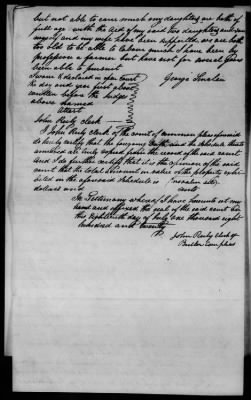 but not able to earn much my daughters are both of
full age with the aid of my said two daughters and son
myself and my wife I have been
too old to be able to labour much I have been by
profession a farmer but have not for several years
been able to pursue it
Sworn & declared in open court
the day and year first above
written before the Judges
above named
Attest
John Reily clerk
George Smalea
I John Reily clerk of the court of common pleas foresaid
do hereby certify that the foregoing Oath and the schedule thereto
annexed are truly copied from the record of the said court
and I do further certify that it is the opinion of the said
court that the total amount in value of the property exhi
bited in the aforesaid schedule is
dollars and cents
In Testimony whereof I have hereunto set my
hand and affixed the seal of the said court on
this eighteenth day of July one thousand eight
hundred and twenty
John Reily clerk of
Butler com pleas